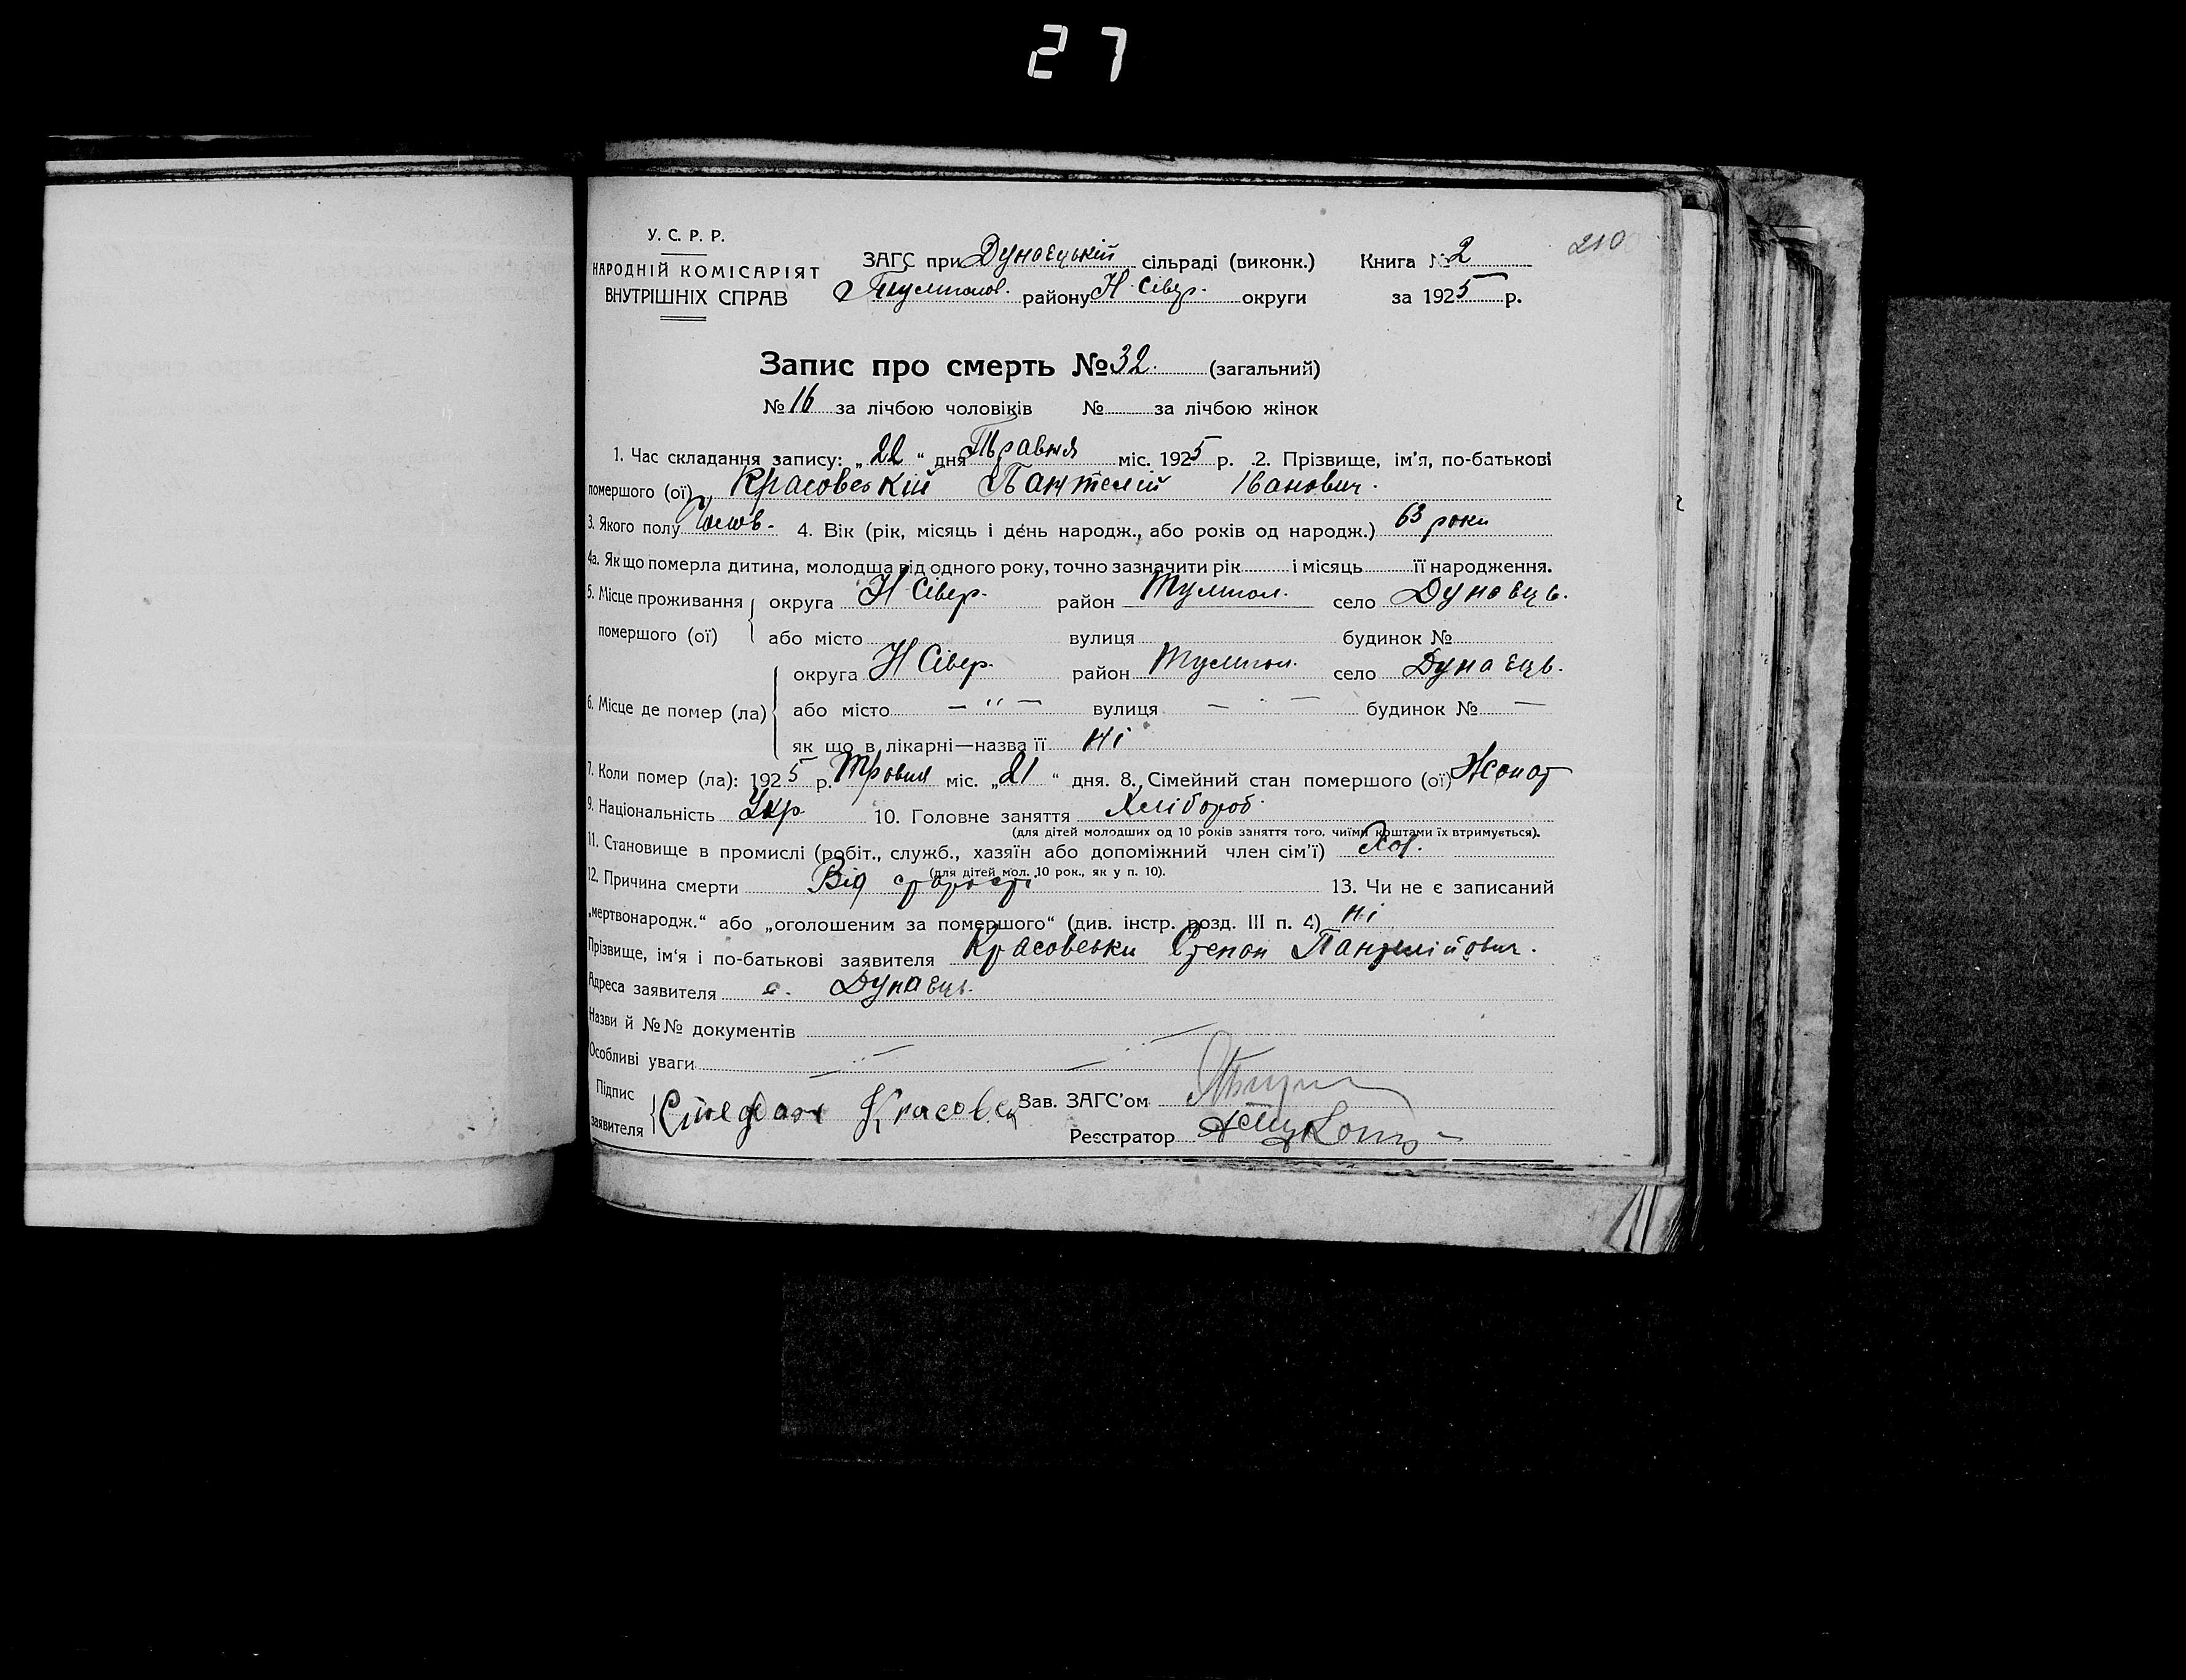 27
210
У. С. Р. Р.
НАРОДНІЙ КОМІСАРІЯТ
ВНУТРІШНІХ СПРАВ
ЗАГС при Дунаєцькій сільраді (виконк.) Книга № 2
району Н Сівер. округи за 1925 р.
Запис про смерть № 32. (загальний)
№ 16 за лічбою чоловіків № за лічбою жінок
1. Час складання запису: „ 22 “ дня Травня міс. 1925 р. 2. Прізвище, ім'я, по-батькові
помершого (ої) Красовський Пантелій Іванович.
3. Якого полу Чолов. 4. Вік (рік, місяць і день народж., або років од народж.) 63 роки
4а. Як що померла дитина, молодша від одного року, точно зазначити рік і місяць її народження.
5. Місце проживання помершого (ої) округа Н Сівер. район село Дунаєць.
або місто вулиця будинок №
6. Місце де помер (ла) округа Н Сівер. район село Дунаєць.
або місто — “ — вулиця — будинок № —
як що в лікарні—назва її Ні
7. Коли помер (ла): 1925 р. Травня міс. „ 21 “ дня. 8. Сімейний стан помершого (ої) Жонат
9. Національність Укр 10. Головне заняття Хлібороб.
(для дітей молодших од 10 років заняття того, чиїми коштами їх втримується).
11. Становище в промислі (робіт., служб., хазяїн або допоміжний член сім'ї) Хоз.
(для дітей мол. 10 рок., як у п. 10).
12. Причина смерти Від старості 13. Чи не є записаний
„мертвонародж.“ або „оголошеним за помершого“ (див. інстр. розд. III п. 4) Ні
Прізвище, ім'я і по-батькові заявителя Красовськи Степан Пантелійович.
Адреса заявителя с. Дунаєць.
Назви й №№ документів
Особливі уваги
Підпис заявителя Стефан Зав. ЗАГС'ом
Реєстратор